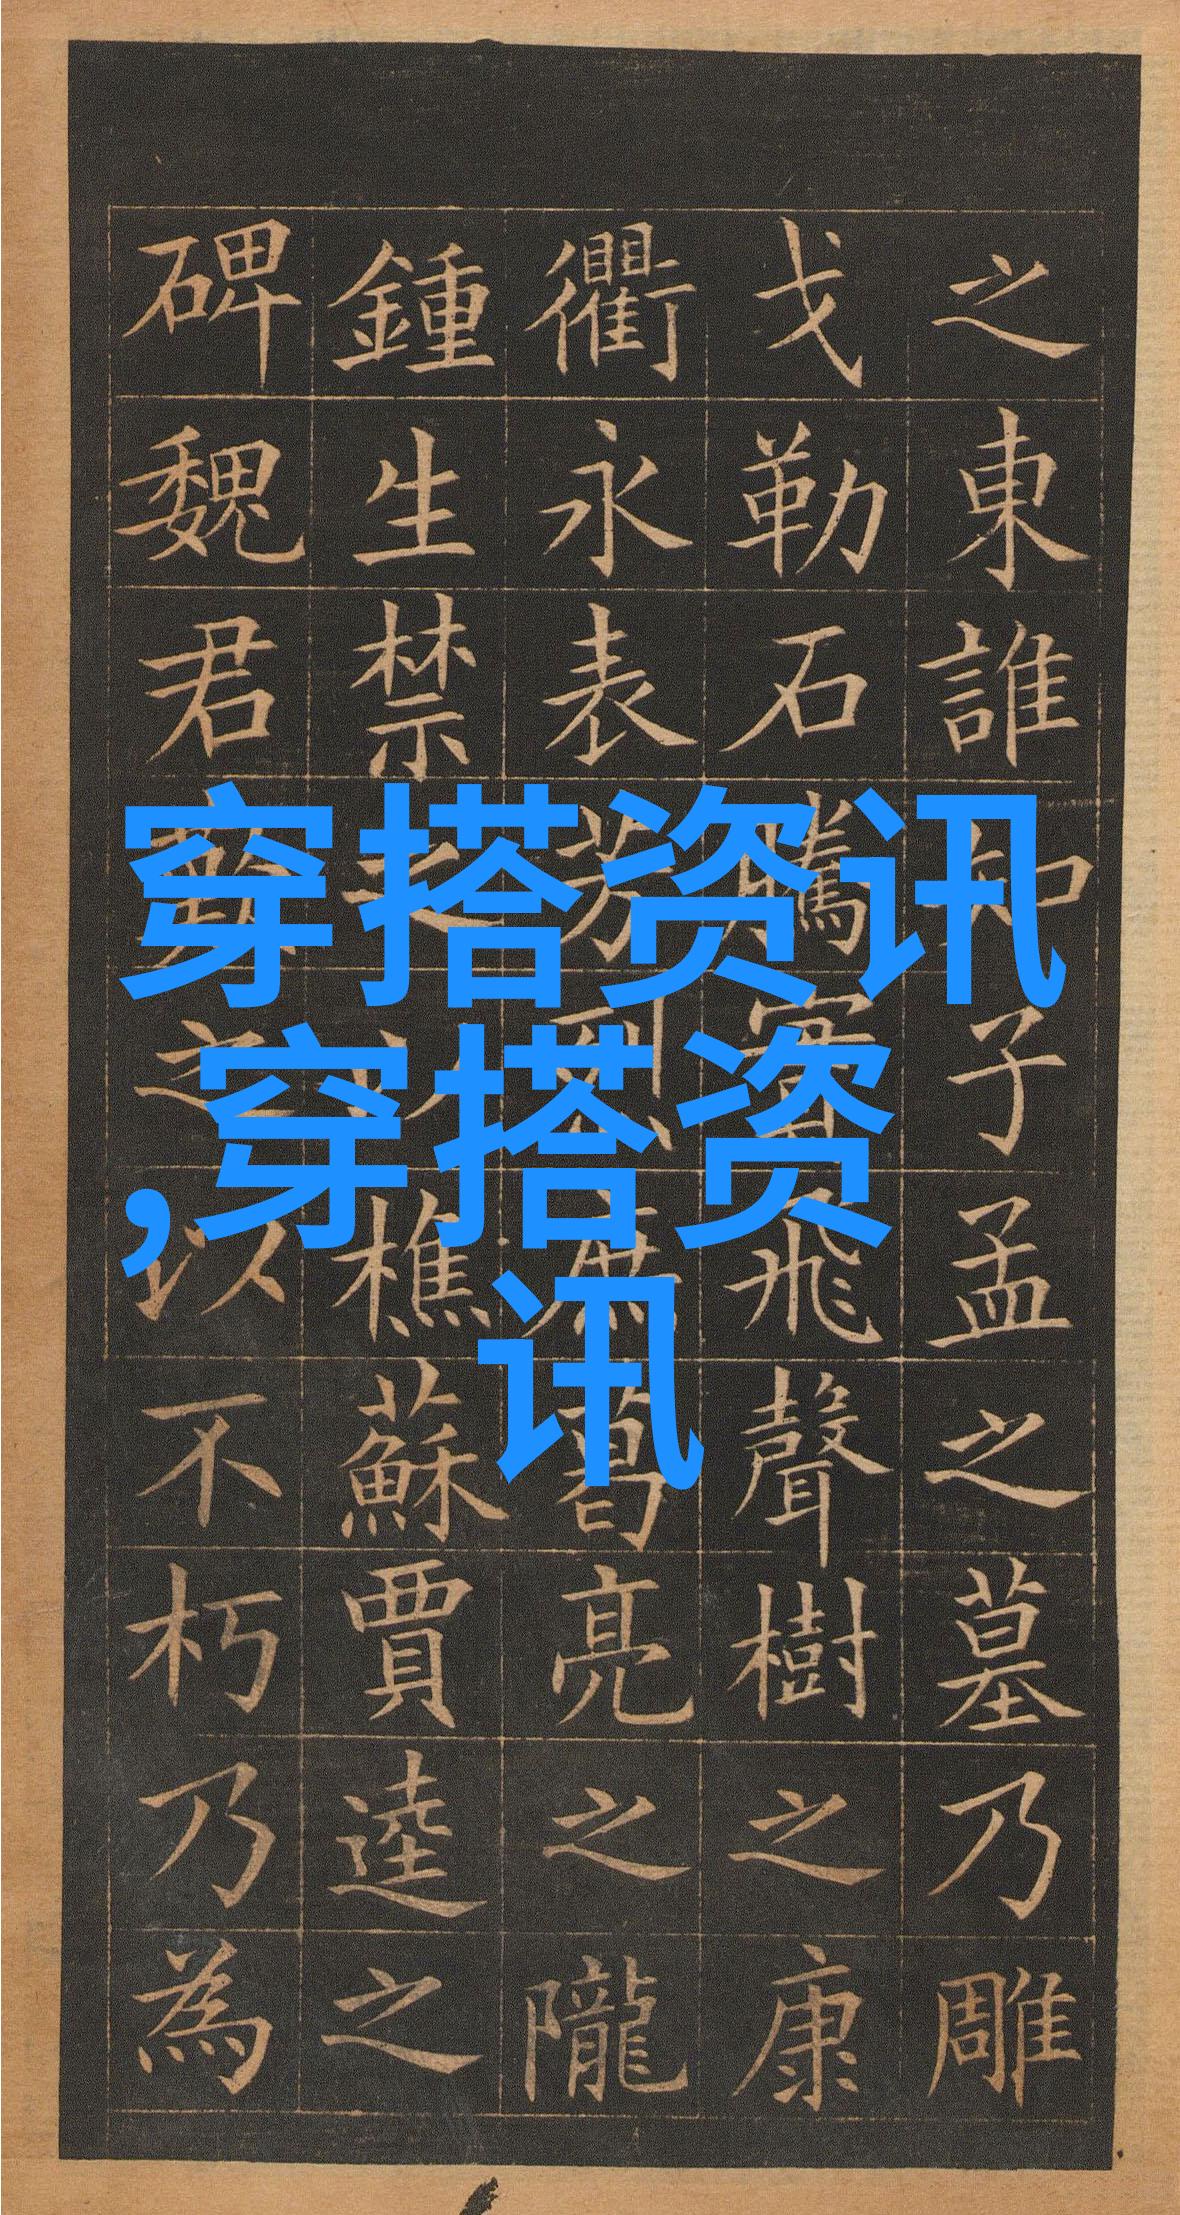 穿搭资讯
,穿搭资
讯
之東誰知子孟之墓乃雕
戈勒石騰實飛聲樹之康
衢永表芳烈庶葛亮之隴
鍾生禁之以樵蘇賈逵之
碑魏君之以不朽乃為